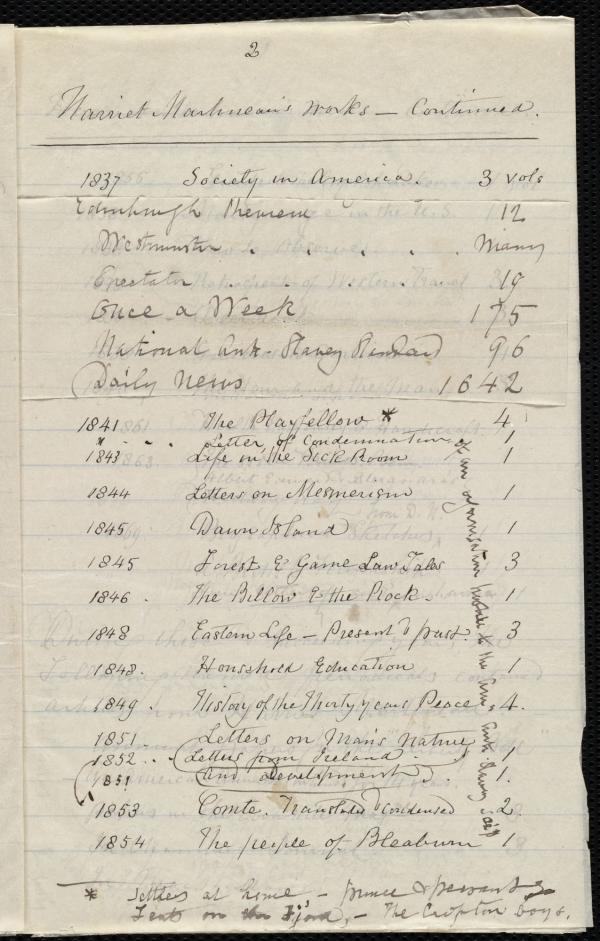 2
Harriet Martineau's Works — Continued.
1837 Society in America. 3 vols
Edinburgh Review 12
Westminster . . . . . Many
Spectator . . . . . 19
Once a Week 175
National Ank. Slavery Standard 96
Daily News 1642
1841 The Playfellow * 4
" - - - Letter of Condemnation of an organisation hostile to the Am. Ank. Slavery 1
1843 Life in the Sick Room 1
1844 Letters on Mesmerism 1
1845 Dawn Island 1
1845 Forest & Game Law Tales 3
1846 . The Billow & the Rock. 1
1848 Eastern Life — Present & past. 3
1848. Household Education 1
1849 . History of the Thirty years Peace, 4.
1851. Letters on Man's Nature
1852 . . Letters from Ireland . 1
1851 and Development 1.
1853 Comte. Translated & condensed 2.
1854 The people of Bleaburn 1
* Settlers at home, — prince & peasant
Feats on the Fjord, — The Crofton boys.